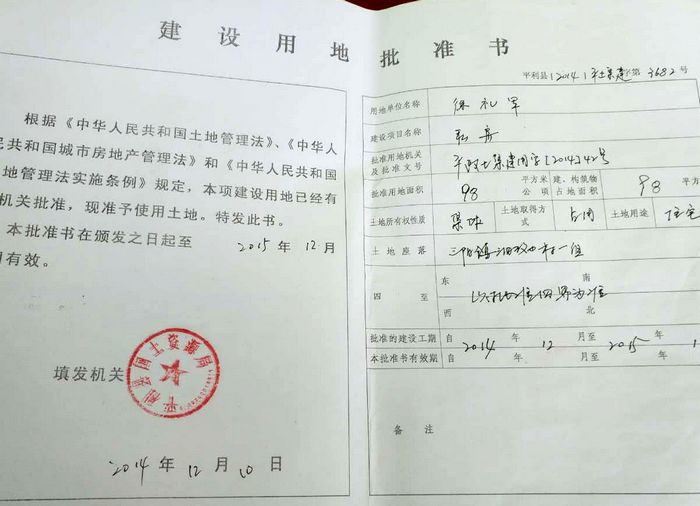 建设用地批准书
根据《中华人民共和国土地管理法》、《中华人
民共和国城市房地产管理法》和《中华人民共和国
地管理法实施条例》规定，本项建设用地已经有
机关批准，现准予使用土地。特发此书。
本批准书在颁发之日起至 2015 年 12 月
有效。
平利县国土资源局
填发机关
2014 年 12 月 10 日
平利县(2014)平土集建字第3682号
用地单位名称 徐礼军
建设项目名称 私房
批准用地机关及批准文号 平政土集建用字[2014]42号
批准用地面积 98 平方米 公顷 建、构筑物占地面积 98 平方
土地所有权性质 集体 土地取得方式 占用 土地用途 住宅
土地座落 三阳镇 村一组
四至 东 南 西 北 以 为准
批准的建设工期 自 2014 年 12 月至 2015 年 1
本批准书有效期 自 年 月至 年
备注